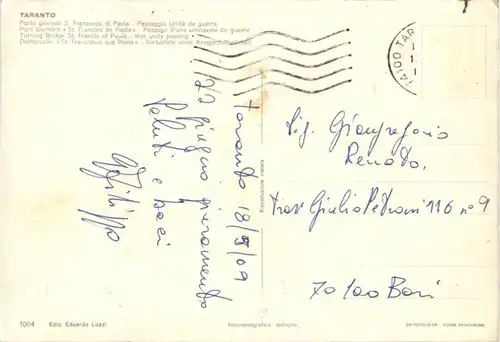 TARANTO
Ponte girevole S. Francesco di Paola - Passaggio Unità da guerra
Pont tournant « St. François de Paola » - Passage d'une unité navale de guerre
Turning Bridge St. Francis of Paula - War unit passing
Drehbrücke « St. Franziskus aus Paola » - Vorbeifahrt einer Kriegsschiffseinheit
74100 TAR
Taranto 18/8/09
22 giugno giuramento
Saluti e baci
Filippo
Sig. Giangregorio
Renato.
Trav Giulio Petroni 116 n° 9
70100 Bari
Riproduzione vietata
1004 Ediz. Edoardo Luzzi
Rotocalcografica - bologna